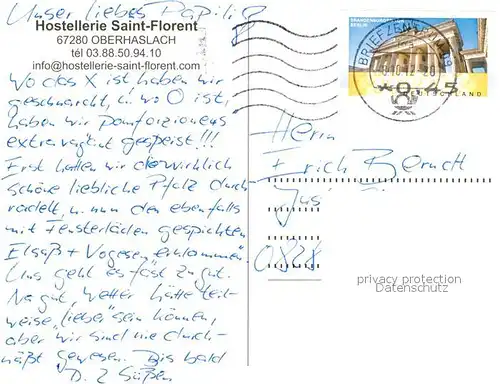 Unser liebes Papili
Hostellerie Saint-Florent
67280 OBERHASLACH
tél 03.88.50.94.10
info@hostellerie-saint-florent.com
Wo das X ist haben wir
geschnarcht, u. wo O ist,
haben wir
extravagant gespeist!!!
Erst hatten wir die wirklich
schöne liebliche Pfalz durch
radelt, u. nun den ebenfalls
mit Fensterläden gespickten
Elsaß + Vogesen "erklommen".
Uns geht es fast zu gut.
Na gut, Wetter hätte teil-
weise "lieber" sein können,
aber wir sind nie durch-
näßt gewesen. Bis bald
D. 2 Süßen
BRANDENBURGER TOR
BERLIN
BRIEFZENTRUM
*0,45
DEUTSCHLAND
Herrn
Erich
0828
privacy protection
Datenschutz